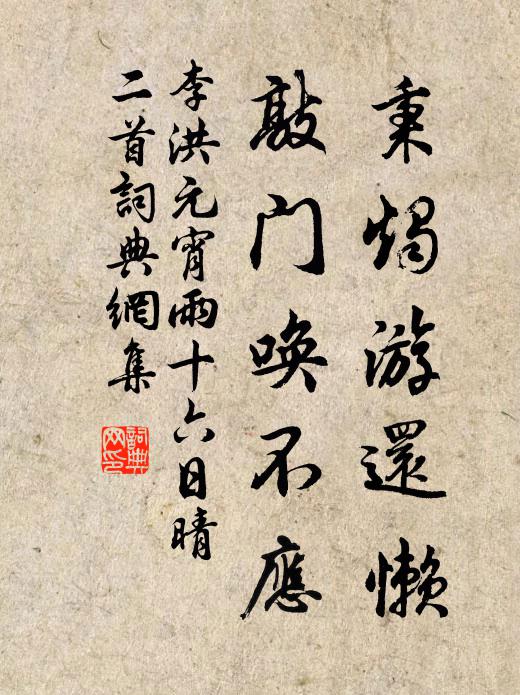 秉燭游還懶
敲門喚不應
李洪元宵雨十六日晴
二首詞典網集
詞典
网印